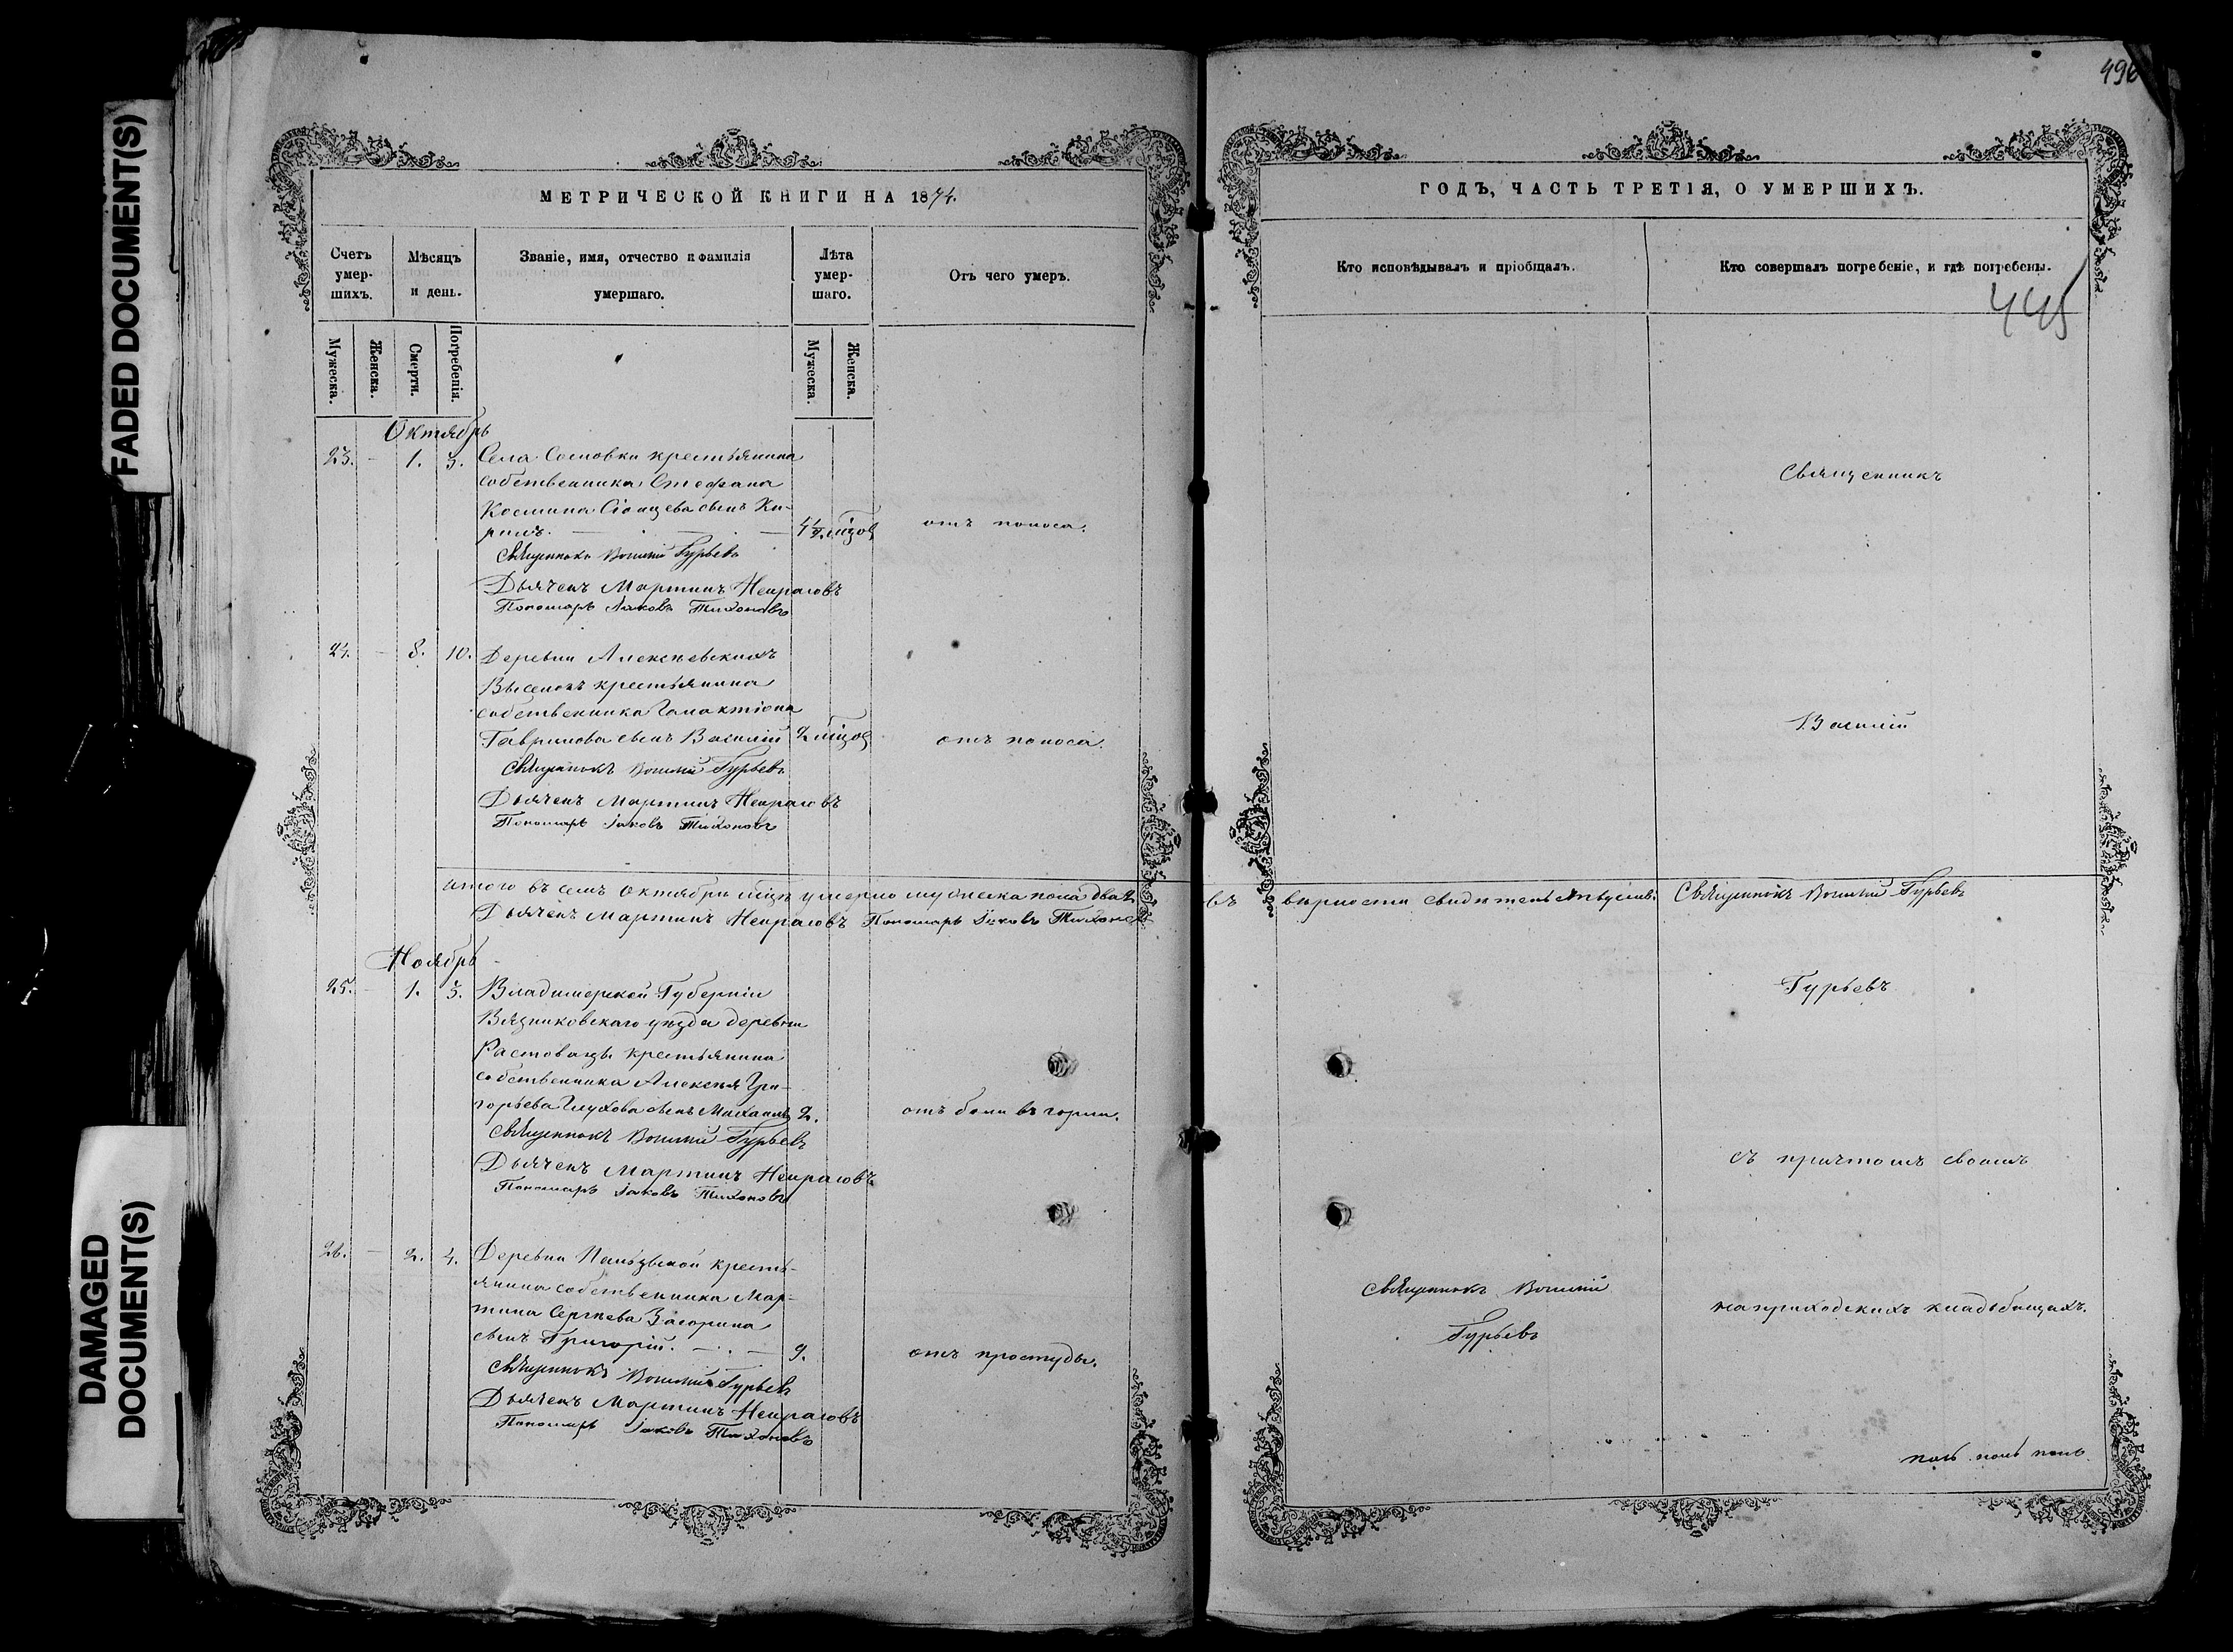 FADED DOCUMENT(S)
DAMAGED
DOCUMENT(S)
МЕТРИЧЕСКОЙ КНИГИ НА 1874.
Счетъ умер-шихъ.
Мѣсяцъ и день.
Званіе, имя, отчество и фамилія умершаго.
Лѣта умер-шаго.
Отъ чего умеръ.
Мужеска.
Женска.
Смерти.
Погребенія.
Мужеска.
Женска.
Октябрь
23. 1. 3. Села Сосновки крестьянина
собственника Стефана
Космина сынъ Ки-
рилъ. отъ поноса.
Священникъ Василій Гурьевъ
Дьячекъ Мартинъ Некрасовъ
Пономарь Іаковъ Тихоновъ
24. 8. 10. Деревни Алексѣевскихъ
Выселокъ крестьянина
собственника Галактіона
Гаврилова сынъ Василій отъ поноса.
Священникъ Василій Гурьевъ
Дьячекъ Мартинъ Некрасовъ
Пономарь Іаковъ Тихоновъ
итого въ семъ Октябрѣ мѣсцѣ умерло мужеска пола два
Дьячекъ Мартинъ Некрасовъ Пономарь Іаковъ Тихоновъ
Ноябрь
25. 1. 3. Владимерской Губерніи
Вязниковскаго уѣзда деревни
крестьянина
собственника Алексѣя Гри-
горьева Глухова сынъ Михаилъ 2. отъ боли въ горлѣ.
Священникъ Василій Гурьевъ
Дьячекъ Мартинъ Некрасовъ
Пономарь Іаковъ Тихоновъ
26. 2. 4. Деревни кресть-
янина собственника Мар-
тина Сергѣева
сынъ Григорій. 9. отъ простуды.
Священникъ Василій Гурьевъ
Дьячекъ Мартинъ Некрасовъ
Пономарь Іаковъ Тихоновъ
496
ГОДЪ, ЧАСТЬ ТРЕТІЯ, О УМЕРШИХЪ.
Кто исповѣдывалъ и пріобщалъ.
Кто совершалъ погребеніе, и гдѣ погребены.
445
Священникъ
Василій
въ вѣрности Священникъ Василій Гурьевъ
Гурьевъ
съ причтомъ своимъ
Священникъ Василій
Гурьевъ
на приходскихъ кладбищахъ.